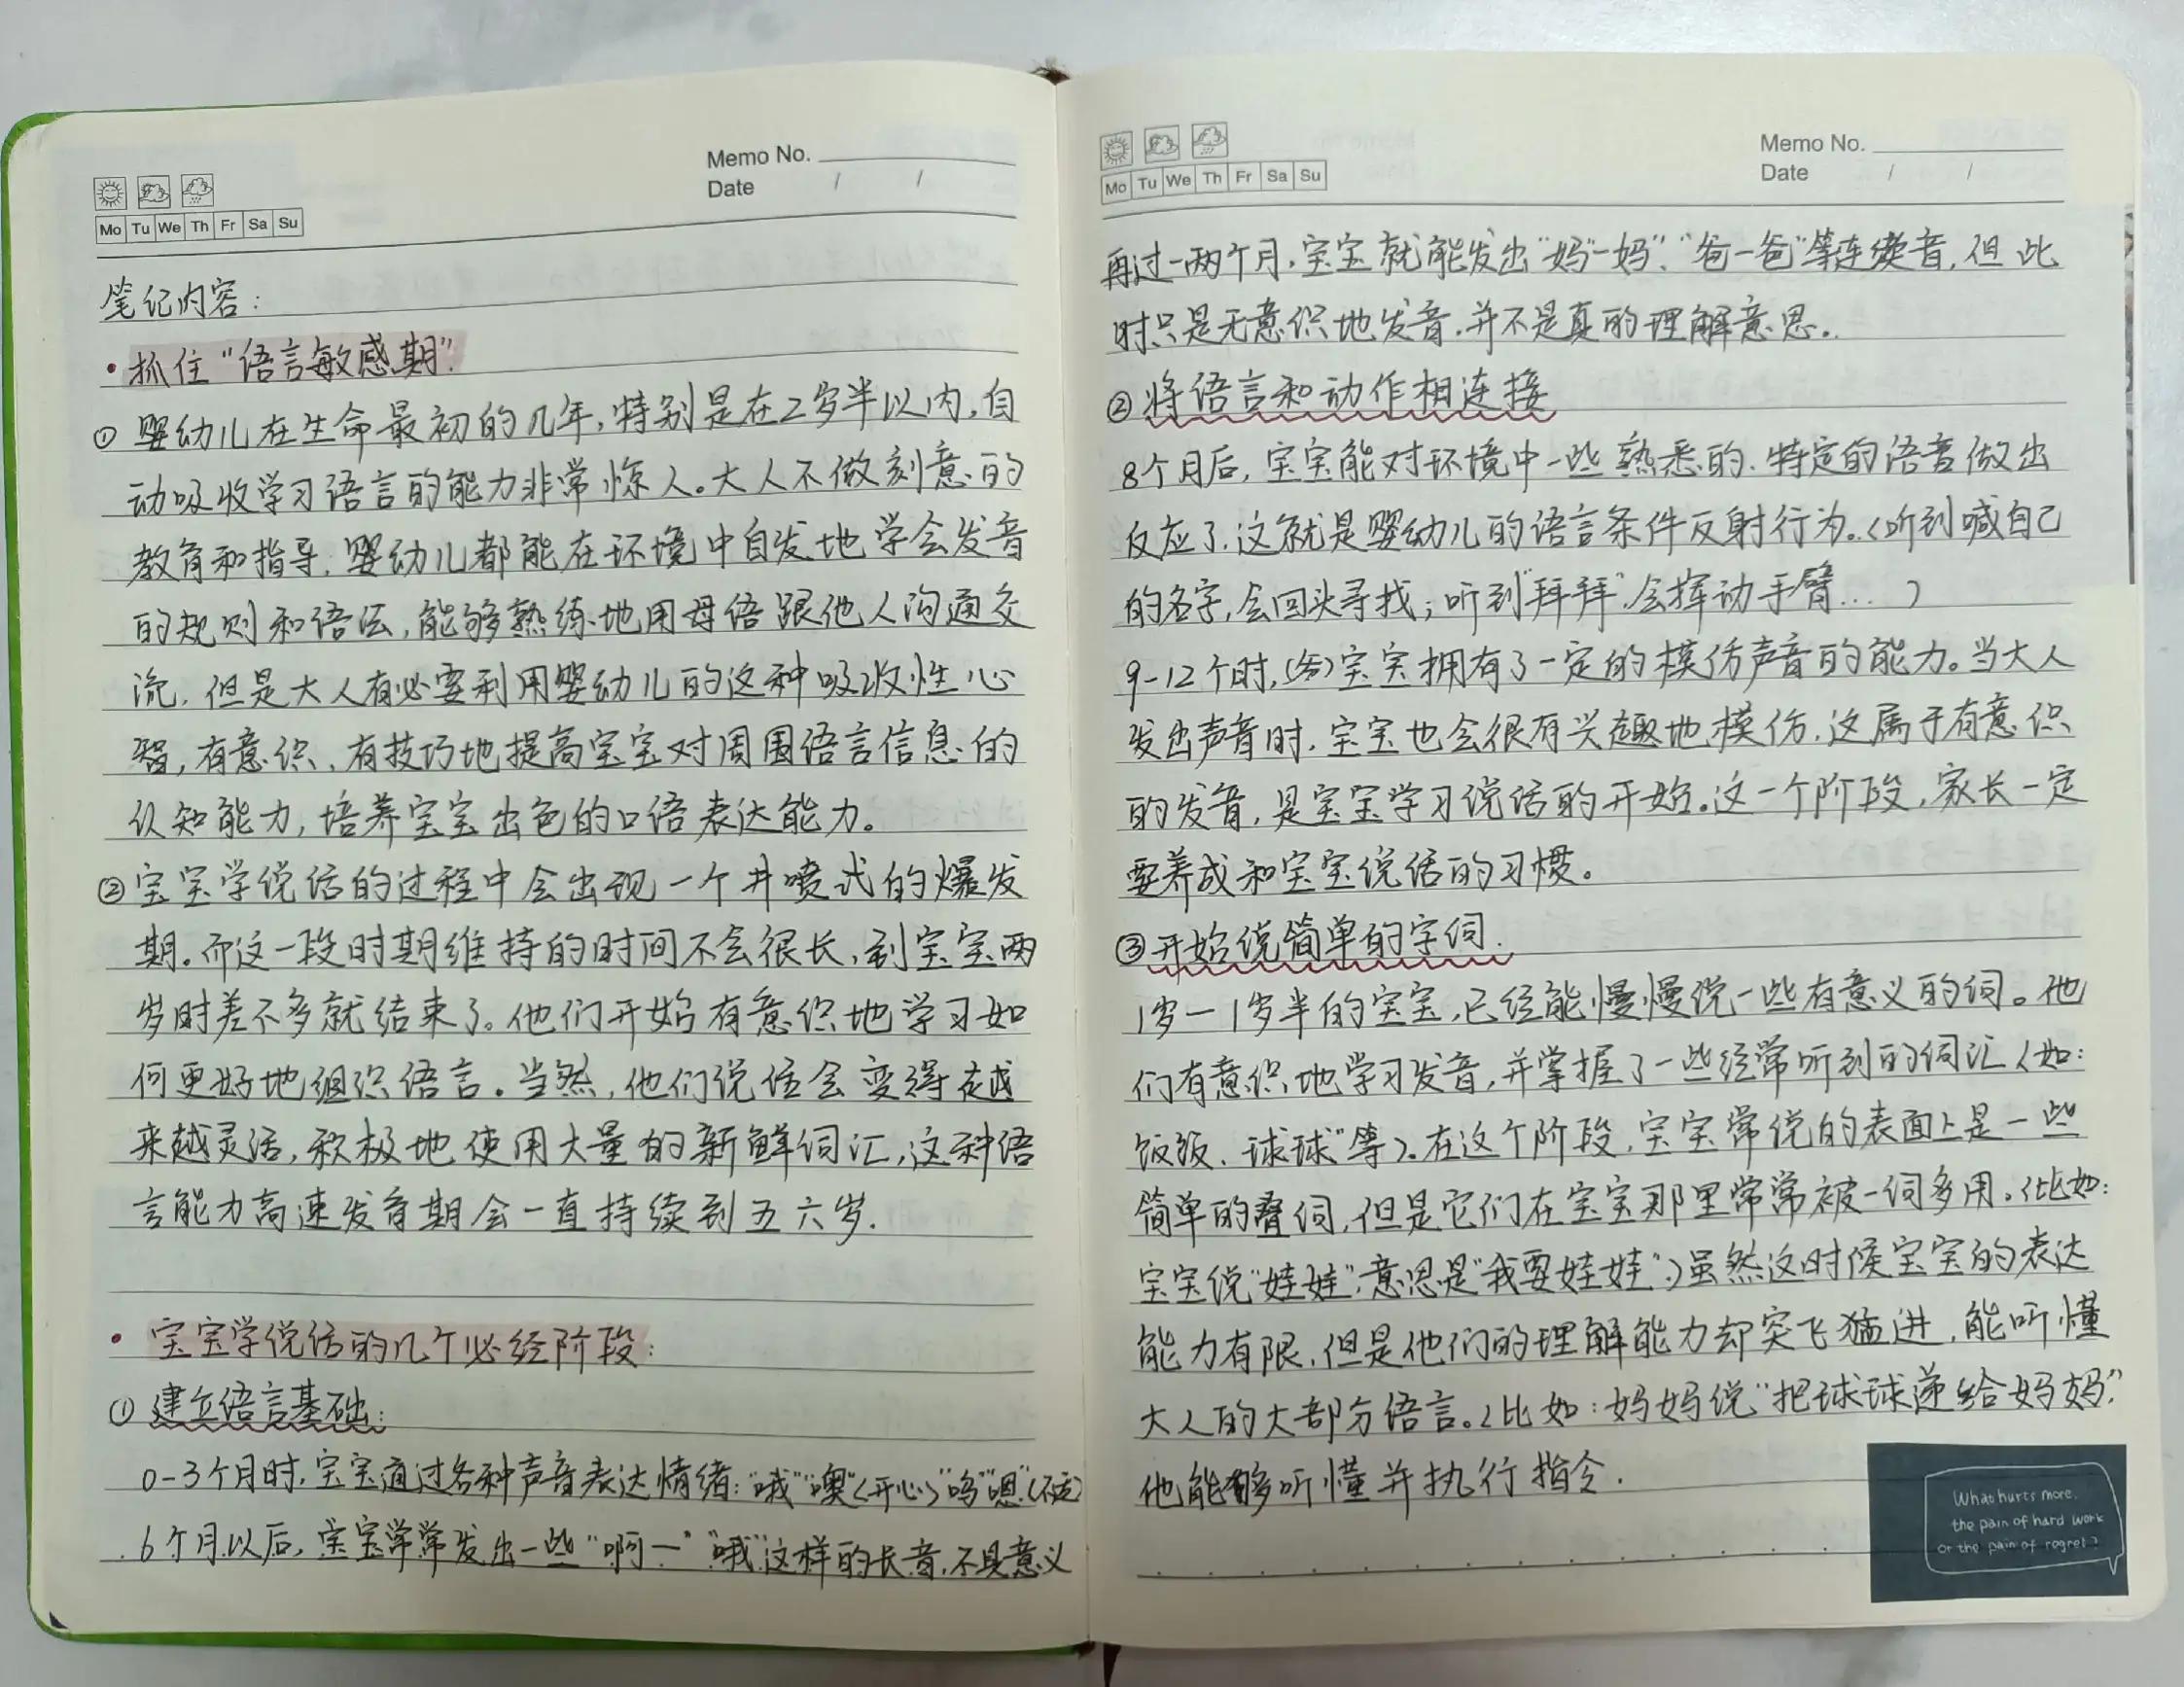 Memo No.
Date / /
Mo Tu We Th Fr Sa Su
笔记内容：
·抓住“语言敏感期”.
① 婴幼儿在生命最初的几年,特别是在2岁半以内,自
动吸收学习语言的能力非常惊人。大人不做刻意的
教育和指导,婴幼儿都能在环境中自发地学会发音
的规则和语法,能够熟练地用母语跟他人沟通交
流,但是大人有必要利用婴幼儿的这种吸收性心
智,有意识、有技巧地提高宝宝对周围语言信息的
认知能力,培养宝宝出色的口语表达能力。
② 宝宝学说话的过程中会出现一个井喷式的爆发
期。而这一段时期维持的时间不会很长,到宝宝两
岁时差不多就结束了。他们开始有意识地学习如
何更好地组织语言。当然,他们说话会变得越
来越灵活,积极地使用大量的新鲜词汇,这种语
言能力高速发育期会一直持续到五六岁.
·宝宝学说话的几个必经阶段:
① 建立语言基础:
0-3个月时,宝宝通过各种声音表达情绪:“哦”“噢”(开心)“呜”“嗯”
6个月以后,宝宝常常发出一些“啊一”“哦”这样的长音,不具意义
Memo No.
Date / /
Mo Tu We Th Fr Sa Su
再过一两个月,宝宝就能发出“妈一妈”、“爸一爸”等连续音,但此
时只是无意识地发音,并不是真的理解意思..
② 将语言和动作相连接
8个月后,宝宝能对环境中一些熟悉的、特定的语音做出
反应了,这就是婴幼儿的语言条件反射行为。(听到喊自己
的名字,会回头寻找;听到“拜拜”会挥动手臂...)
9-12个时,宝宝拥有了一定的模仿声音的能力。当大人
发出声音时,宝宝也会很有兴趣地模仿,这属于有意识
的发音,是宝宝学习说话的开始。这一个阶段,家长一定
要养成和宝宝说话的习惯。
③ 开始说简单的字词.
1岁一1岁半的宝宝,已经能慢慢说一些有意义的词。他
们有意识地学习发音,并掌握了一些经常听到的词汇(如:
饭饭、球球”等)。在这个阶段,宝宝常说的表面上是一些
简单的叠词,但是它们在宝宝那里常常被一词多用。(比如:
宝宝说“娃娃”,意思是“我要娃娃”.)虽然这时候宝宝的表达
能力有限,但是他们的理解能力却突飞猛进,能听懂
大人的大部分语言。(比如:妈妈说“把球球递给妈妈”,
他能够听懂并执行指令.
What hurts more,
the pain of hard work
or the pain of regret?